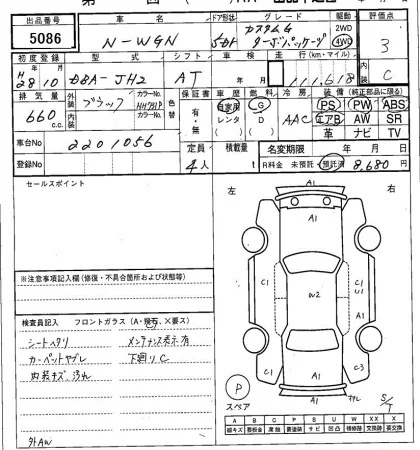 出品番号 車名 ドア形状 グレード 駆動 評価点
5086 N-WGN 5D カスタムG ターボパッケージ 2WD 4WD 3
初度登録 型式 シフト 車検 走行(km・マイル) 内装
H28年10月 DBA-JH2 AT 年 月 111,618 C
排気量 外装 カラーNo. 色替 カラーNo. 保証書 車歴 燃料 冷房 装備(純正部品に限る)
660c.c. ブラック 有・無 自家用 レンタ ( ) G D ( ) AAC PS PW ABS
エアB AW SR
革 ナビ TV
車台No 2201056 定員 積載量 名変期限 年 月 日
登録No 4人 t R料金 未預託 預託済 8,680円
セールスポイント
左 右
A1
A1
C1 C1
U1
W2 A1
C1 C3
A1
※注意事項記入欄(修復・不具合箇所および状態等)
検査員記入 フロントガラス(A・飛石・X要ス)
シートヘタリ メンテナンス表示有
カーペットヤブレ 下廻りC
内装キズ、汚れ
外AW
P
スペア
S/T
A B C P S U W X XX
線キズ 要板金 腐蝕 要塗装 サビ 凹凸 補修跡 交換跡 要交換